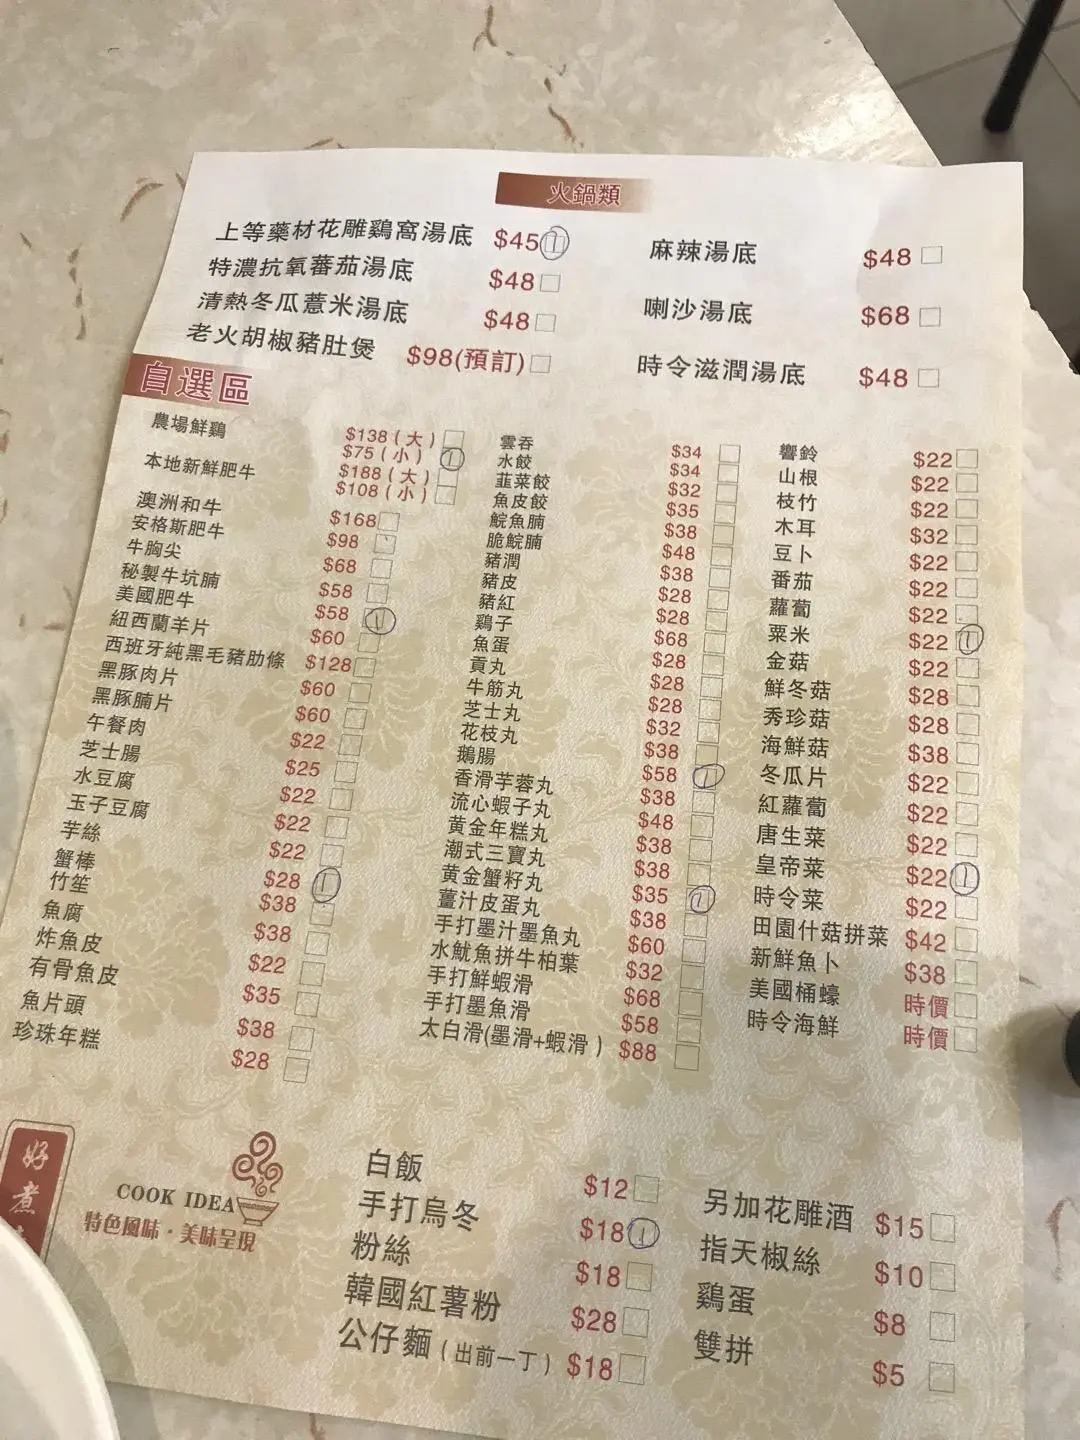 火鍋類
上等藥材花雕鷄窩湯底 $45 ①
特濃抗氧蕃茄湯底 $48
清熱冬瓜薏米湯底 $48
老火胡椒豬肚煲 $98(預訂)
麻辣湯底 $48
喇沙湯底 $68
時令滋潤湯底 $48
自選區
農場鮮鷄 $138(大)
$75(小) ①
本地新鮮肥牛 $188(大)
$108(小)
澳洲和牛 $168
安格斯肥牛 $98
牛胸尖 $68
秘製牛坑腩 $58
美國肥牛 $58 ①
紐西蘭羊片 $60
西班牙純黑毛豬肋條 $128
黑豚肉片 $60
黑豚腩片 $60
午餐肉 $22
芝士腸 $25
水豆腐 $22
玉子豆腐 $22
芋絲 $22
蟹棒 $28 ①
竹笙 $38
魚腐 $38
炸魚皮 $22
有骨魚皮 $35
魚片頭 $38
珍珠年糕 $28
雲吞 $34
水餃 $34
韮菜餃 $32
魚皮餃 $35
鯇魚腩 $38
脆鯇腩 $48
豬潤 $38
豬皮 $28
豬紅 $28
鷄子 $68
魚蛋 $28
貢丸 $28
牛筋丸 $28
芝士丸 $32
花枝丸 $38
鵝腸 $58 ①
香滑芋蓉丸 $38
流心蝦子丸 $48
黄金年糕丸 $38
潮式三寶丸 $38
黄金蟹籽丸 $35 ①
薑汁皮蛋丸 $38
手打墨汁墨魚丸 $60
水魷魚拼牛柏葉 $32
手打鮮蝦滑 $68
手打墨魚滑 $58
太白滑(墨滑+蝦滑) $88
響鈴 $22
山根 $22
枝竹 $22
木耳 $32
豆卜 $22
番茄 $22
蘿蔔 $22
粟米 $22 ①
金菇 $22
鮮冬菇 $28
秀珍菇 $28
海鮮菇 $38
冬瓜片 $22
紅蘿蔔 $22
唐生菜 $22
皇帝菜 $22 ①
時令菜 $22
田園什菇拼菜 $42
新鮮魚卜 $38
美國桶蠔 時價
時令海鮮 時價
好
煮
COOK IDEA
特色風味·美味呈現
白飯 $12
手打烏冬 $18 ①
粉絲 $18
韓國紅薯粉 $28
公仔麵(出前一丁) $18
另加花雕酒 $15
指天椒絲 $10
鷄蛋 $8
雙拼 $5